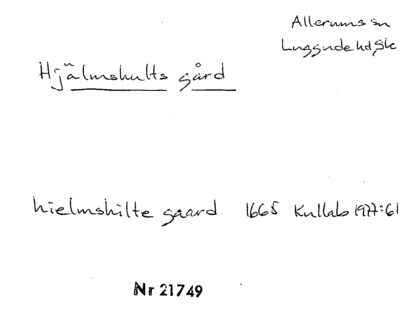 Allerums sn
Luggude hd Sk
Hjälmshults gård
hielmshilte gaard 1665 Kullab 1977:61
Nr 21749